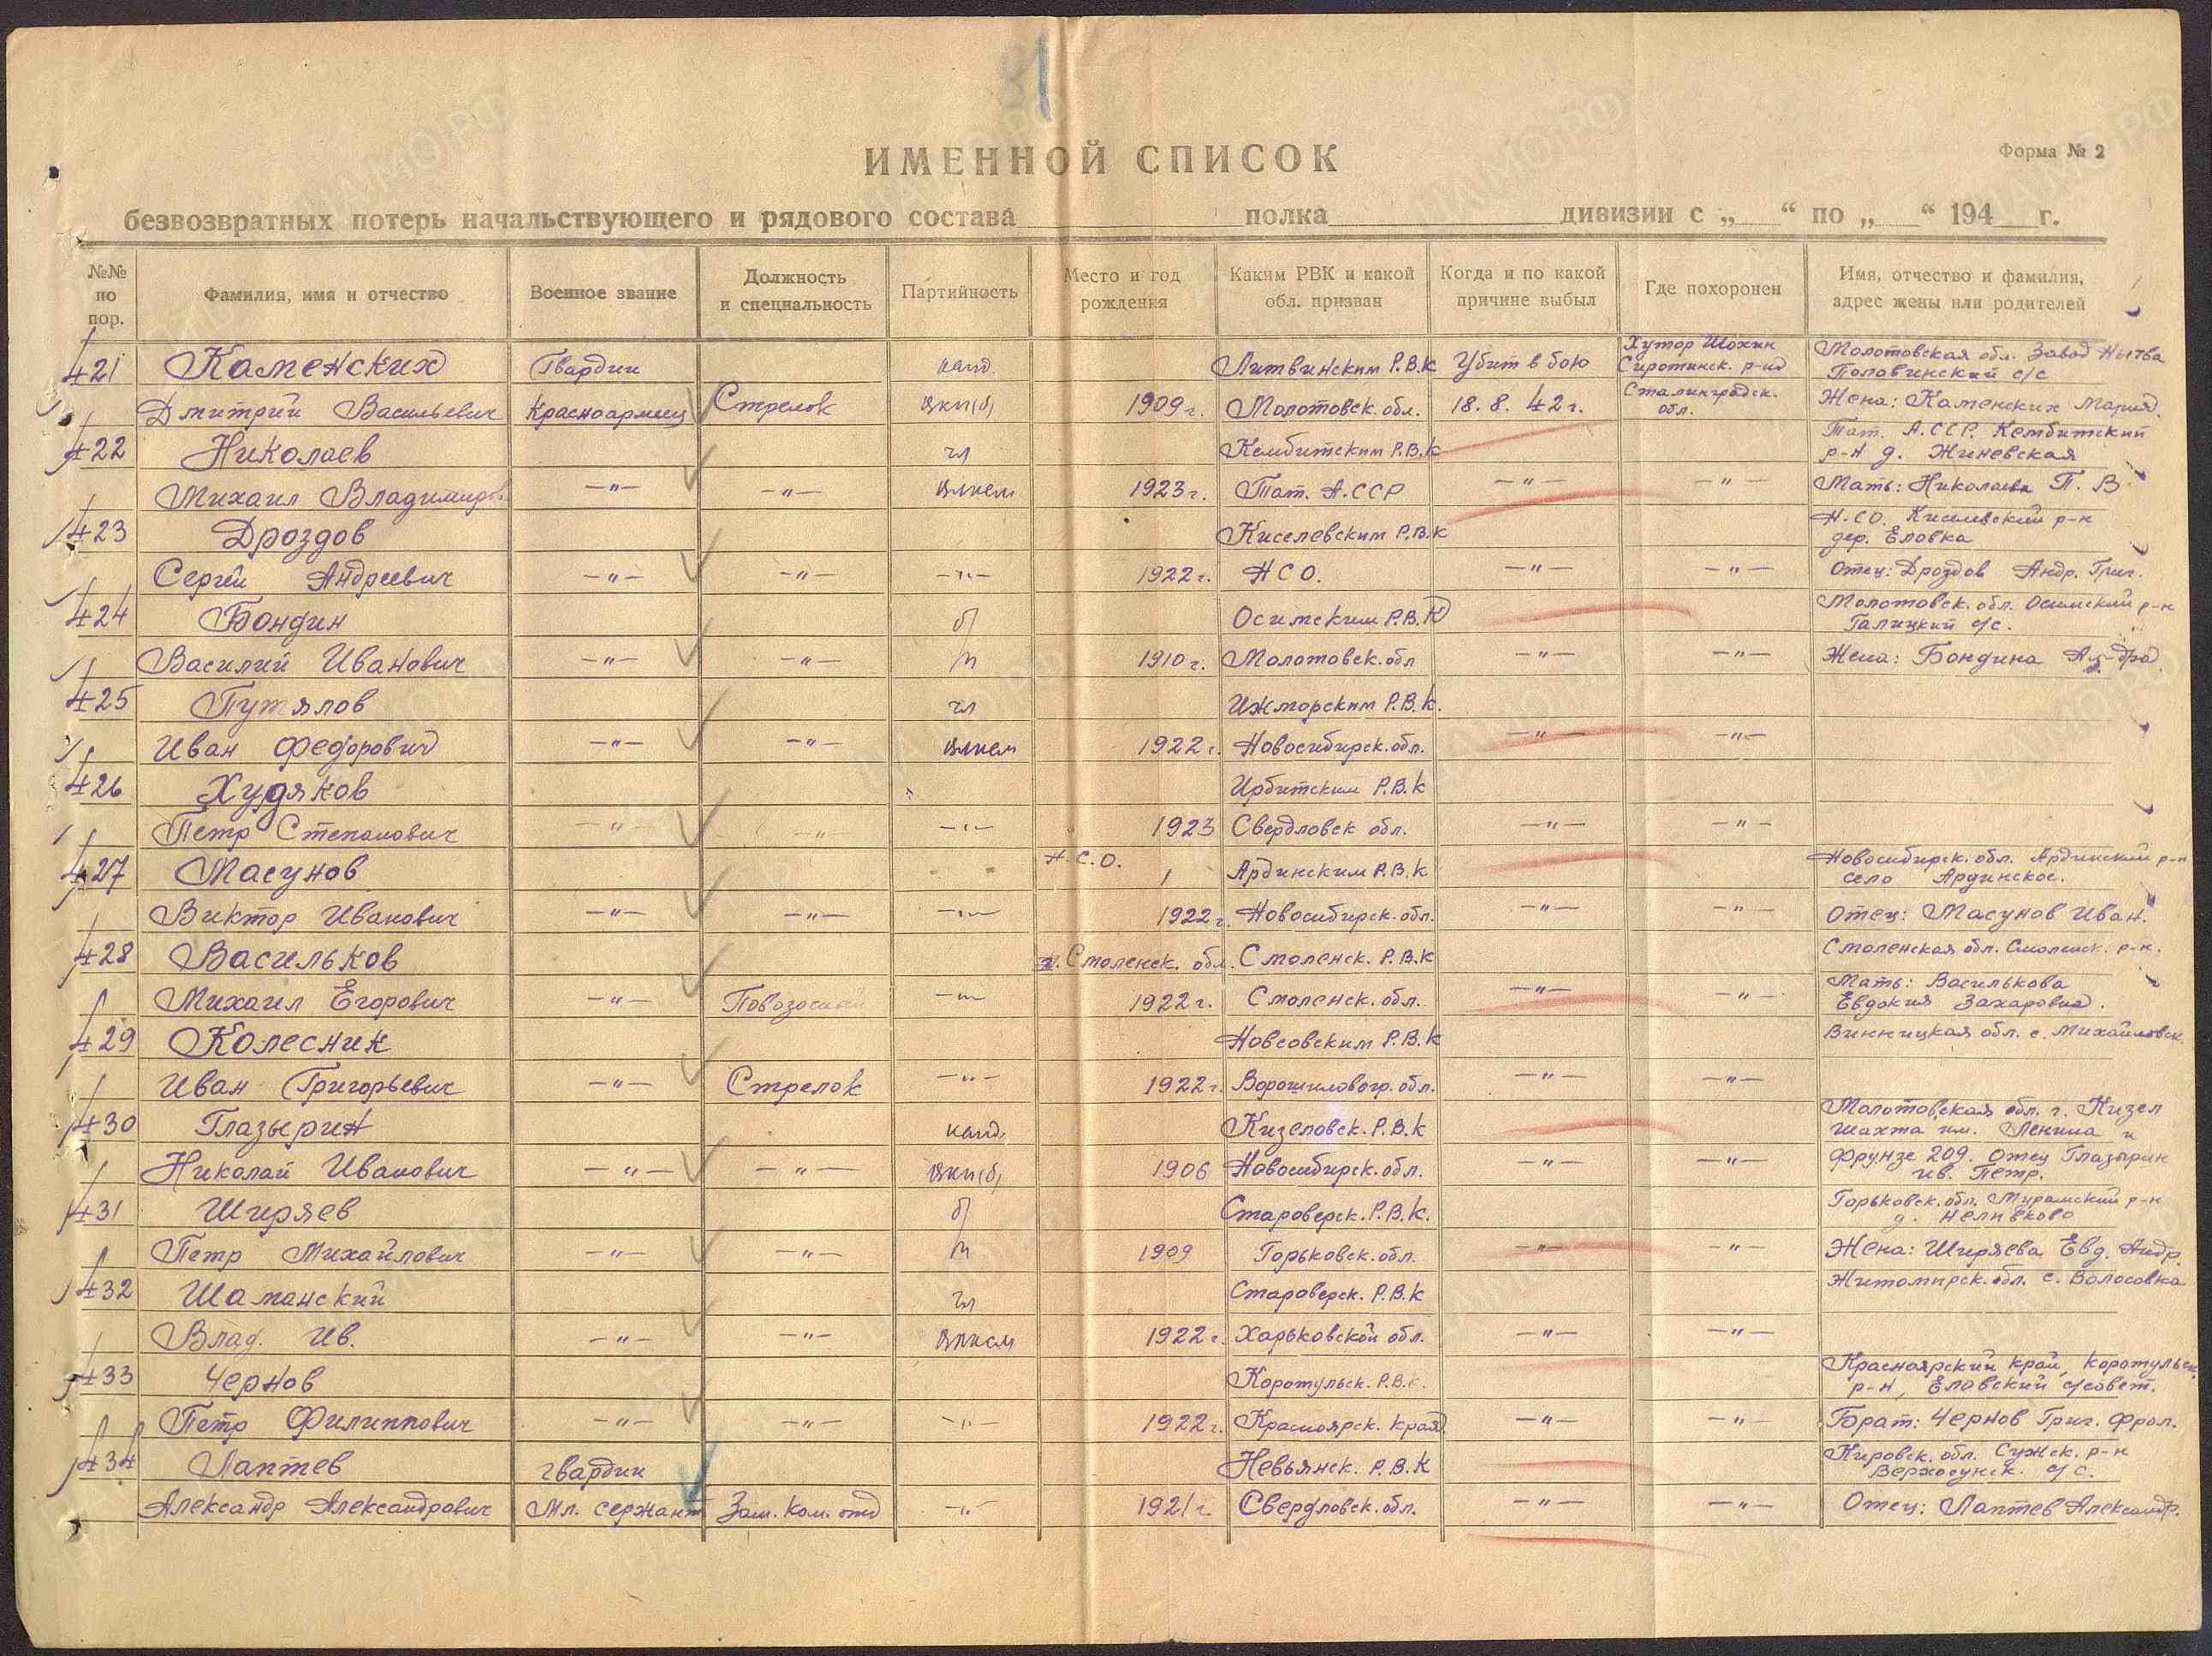 31
ИМЕННОЙ СПИСОК
Форма № 2
безвозвратных потерь начальствующего и рядового состава полка дивизии с „ “ по „ “ 194 г.
№№ по пор.
Фамилия, имя и отчество
Военное звание
Должность и специальность
Партийность
Место и год рождения
Каким РВК и какой обл. призван
Когда и по какой причине выбыл
Где похоронен
Имя, отчество и фамилия, адрес жены или родителей
421 Каменских Гвардии канд. Литвинским Р.В.К Убит в бою Хутор Шохин Сиротинск. р-на Молотовская обл. Завод Нытва Половинский с/с
Дмитрий Васильевич Красноармеец Стрелок ВКП(б) 1909 г. Молотовск. обл. 18.8.42 г. Сталинградск. обл. Жена: Каменских Мария
422 Николаев чл Кембитским Р.В.К Тат. А.ССР. Кембитский р-н д. Жиневская
Михаил Владимиров. —"— —"— ВЛКСМ 1923 г. Тат. А.ССР —"— —"— Мать: Николаева П. В
423 Дроздов Киселевским Р.В.К Н.СО. Киселевский р-н дер. Еловка
Сергей Андреевич —"— —"— —"— 1922 г. НСО. —"— —"— Отец: Дроздов Андр. Григ.
424 Бондин б/ Осинским Р.В.К Молотовск. обл. Осинский р-н Галицкий с/с.
Василий Иванович —"— —"— п 1910 г. Молотовск. обл —"— —"— Жена: Бондина
425 Путялов чл Ижморским Р.В.К.
Иван Федорович —"— —"— ВЛКСМ 1922 г. Новосибирск. обл. —"— —"—
426 Худяков Ирбитским Р.В.К
Петр Степанович —"— —"— —"— 1923 Свердловск обл. —"— —"—
427 Масунов Н.С.О. Ардинским Р.В.К Новосибирск. обл. Ардинский р-н село Ардинское.
Виктор Иванович —"— —"— —"— 1922 г. Новосибирск. обл. —"— —"— Отец: Масунов Иван.
428 Васильков Смоленск. обл. Смоленск. Р.В.К Смоленская обл. Смоленск. р-н.
Михаил Егорович —"— Повозочный —"— 1922 г. Смоленск. обл. —"— —"— Мать: Василькова Евдокия Захаровна.
429 Колесник Новсовским Р.В.К Винницкая обл. с. Михайловск.
Иван Григорьевич —"— Стрелок —"— 1922 г. Ворошиловогр. обл. —"— —"—
430 Глазырин канд. Кизеловск. Р.В.К Молотовская обл. г. Кизел шахта им. Ленина
Николай Иванович —"— —"— ВКП(б) 1906 Новосибирск. обл. —"— —"— Фрунзе 209. Отец Глазырин Ив. Петр.
431 Ширяев б/ Староверск. Р.В.К. Горьковск. обл. Мурамский р-н д.
Петр Михайлович —"— —"— п 1909 Горьковск. обл. —"— —"— Жена: Ширяева Евд. Андр.
432 Шаманский чл Староверск. Р.В.К Житомирск. обл. с. Волосовка
Влад. Ив. —"— —"— ВЛКСМ 1922 г. Харьковской обл. —"— —"—
433 Чернов Коротульск. Р.В.К. Красноярский край, Коротульск. р-н, Еловский с/совет.
Петр Филиппович —"— —"— —"— 1922 г. Красноярск. края —"— —"— Брат: Чернов Григ. Фрол.
434 Лаптев гвардии Невьянск. Р.В.К Кировск. обл. Сунск. р-н Верхосунск. с/с.
Александр Александрович Мл. сержант Зам. Ком. отд —"— 1921 г. Свердловск. обл. —"— —"— Отец: Лаптев Александр.